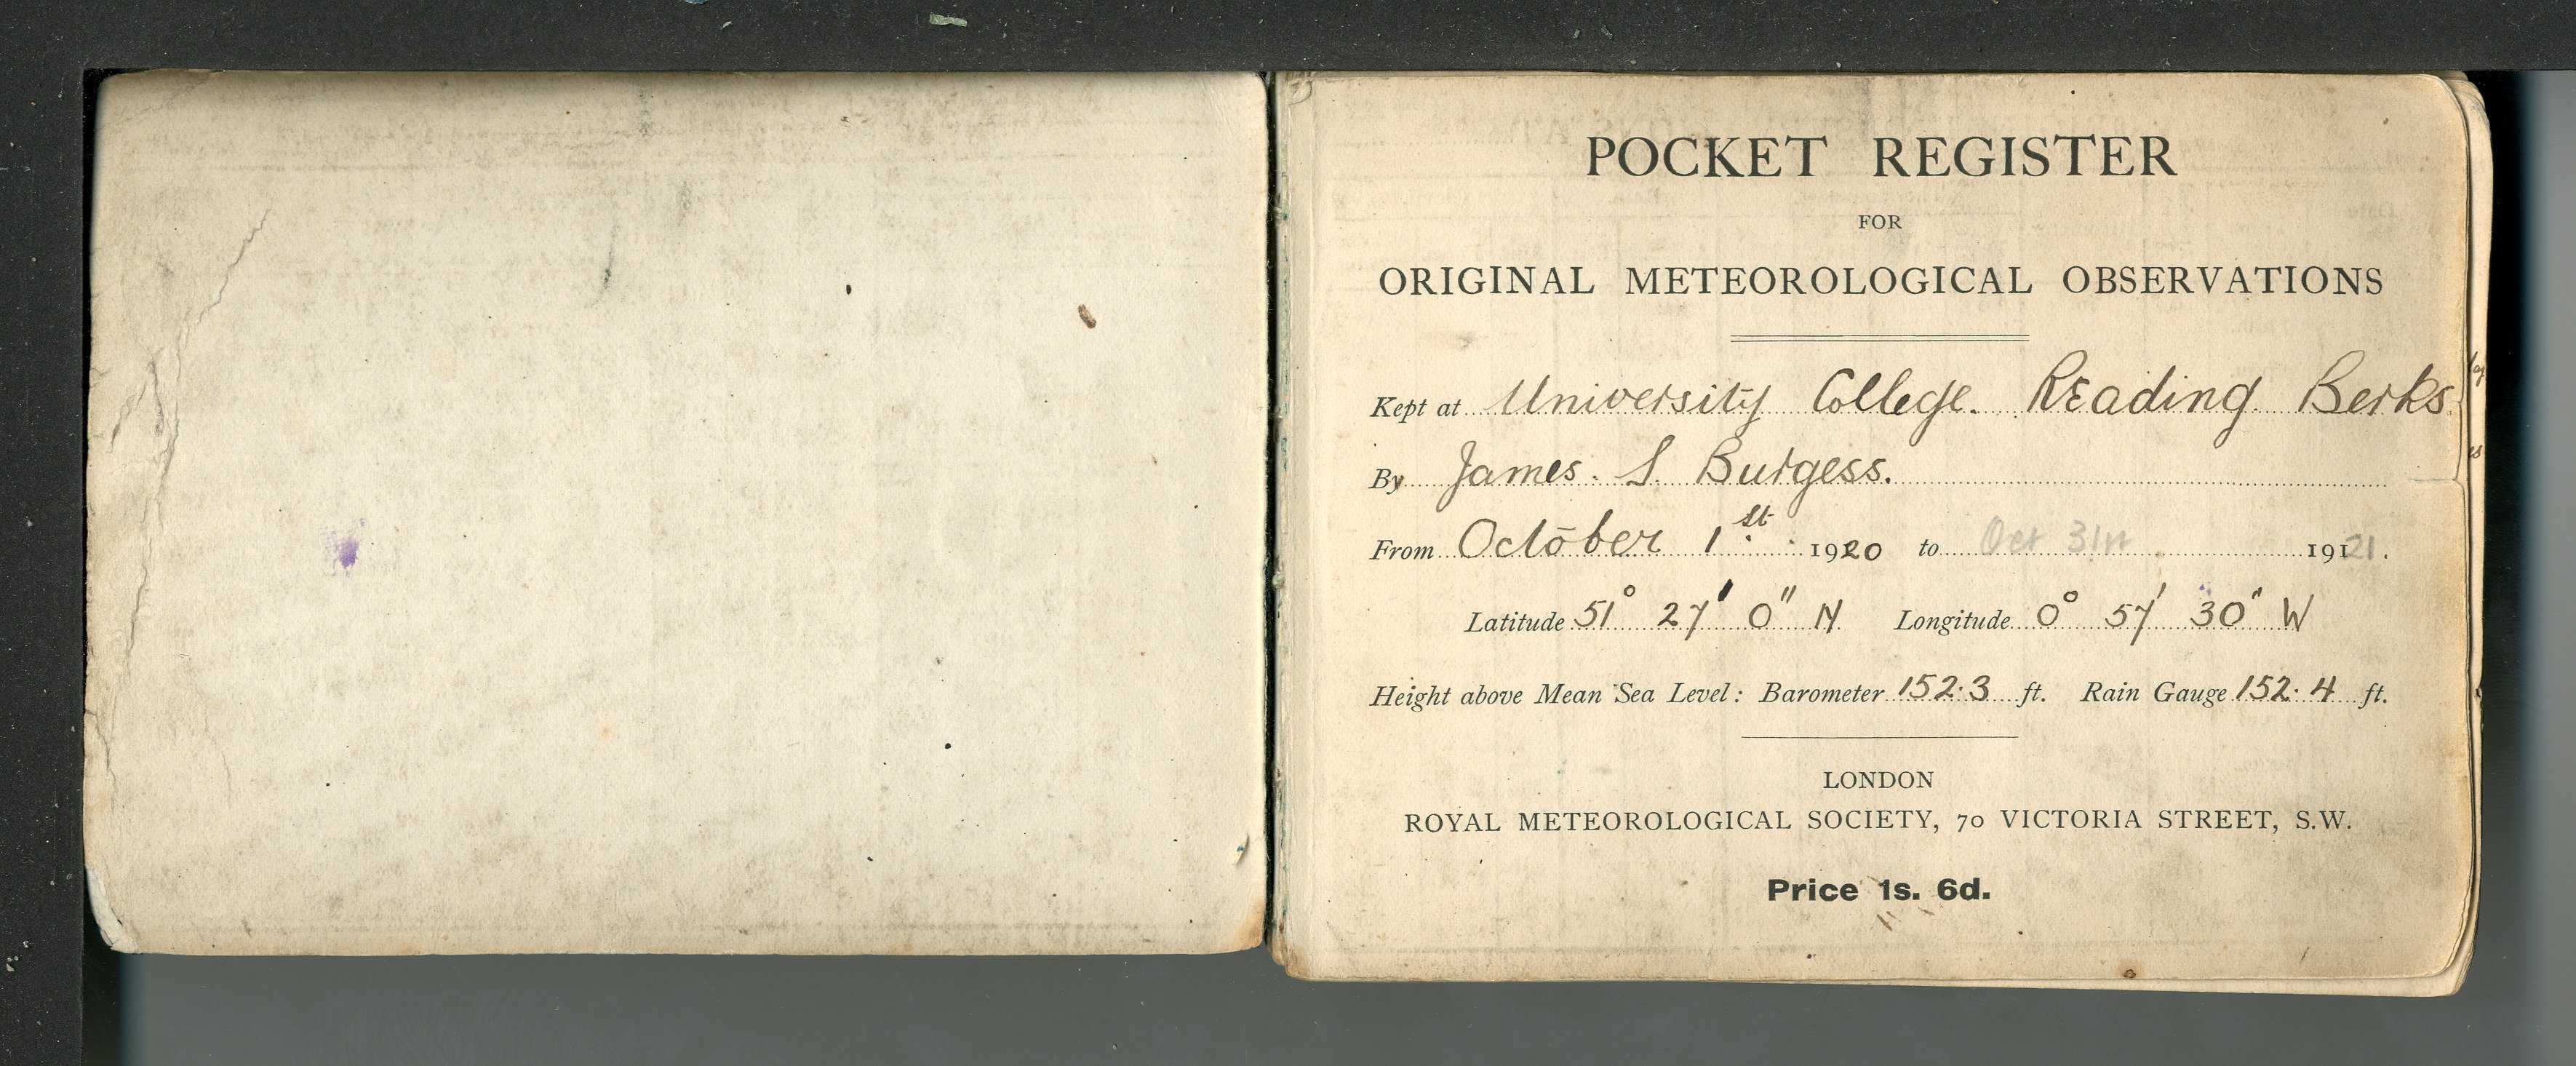 POCKET REGISTER
FOR
ORIGINAL METEOROLOGICAL OBSERVATIONS
Kept at University College. Reading Berks
By James. S. Burgess.
From October 1st 1920 to Oct 31st 1921.
Latitude 51° 27' 0" N Longitude 0° 57' 30" W
Height above Mean Sea Level: Barometer 152.3 ft. Rain Gauge 152.4 ft.
LONDON
ROYAL METEOROLOGICAL SOCIETY, 70 VICTORIA STREET, S.W.
Price 1s. 6d.